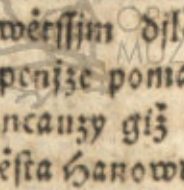 wětssjm djl
penjze poma
ncauzy giž
ěsta Hanow